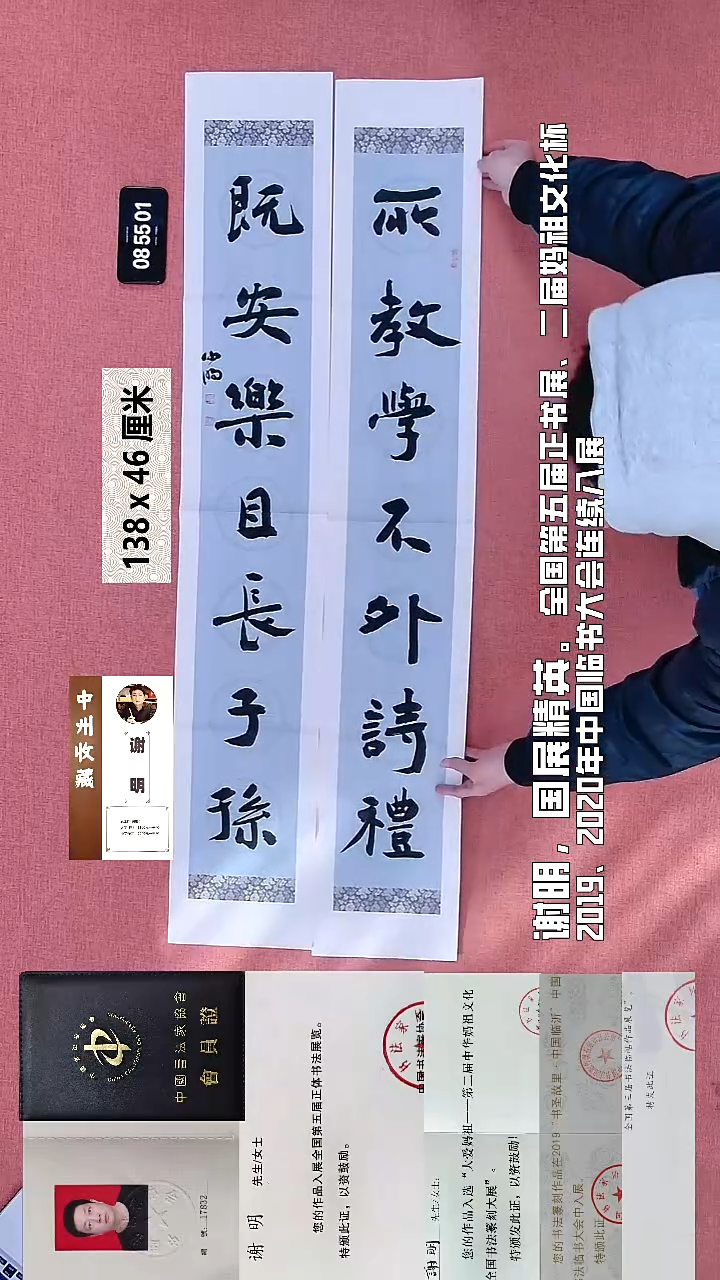 所教學不外詩禮
既安樂且長子孫
谢明
085501
138 x 46 厘米
藏友生中
谢明，国展精英。全国第五届正书展、二届妈祖文化杯
2019、2020年中国临书大会连续入展
中國書法家協會
會員證
編號：17832
谢明 先生/女士
您的作品入展全国第五届正体书法展览。
特颁此证，以资鼓励。
中国书法家协会
謝明 先生/女士：
您的作品入选“大爱妈祖——第二届中华妈祖文化
全国书法篆刻大展”。
特颁发此证，以资鼓励！
您的书法篆刻作品在2019“书圣故里·中国临沂”中国
书法临书大会中入展
特颁此证
全国第三届书法临帖作品展览”。
特发此证